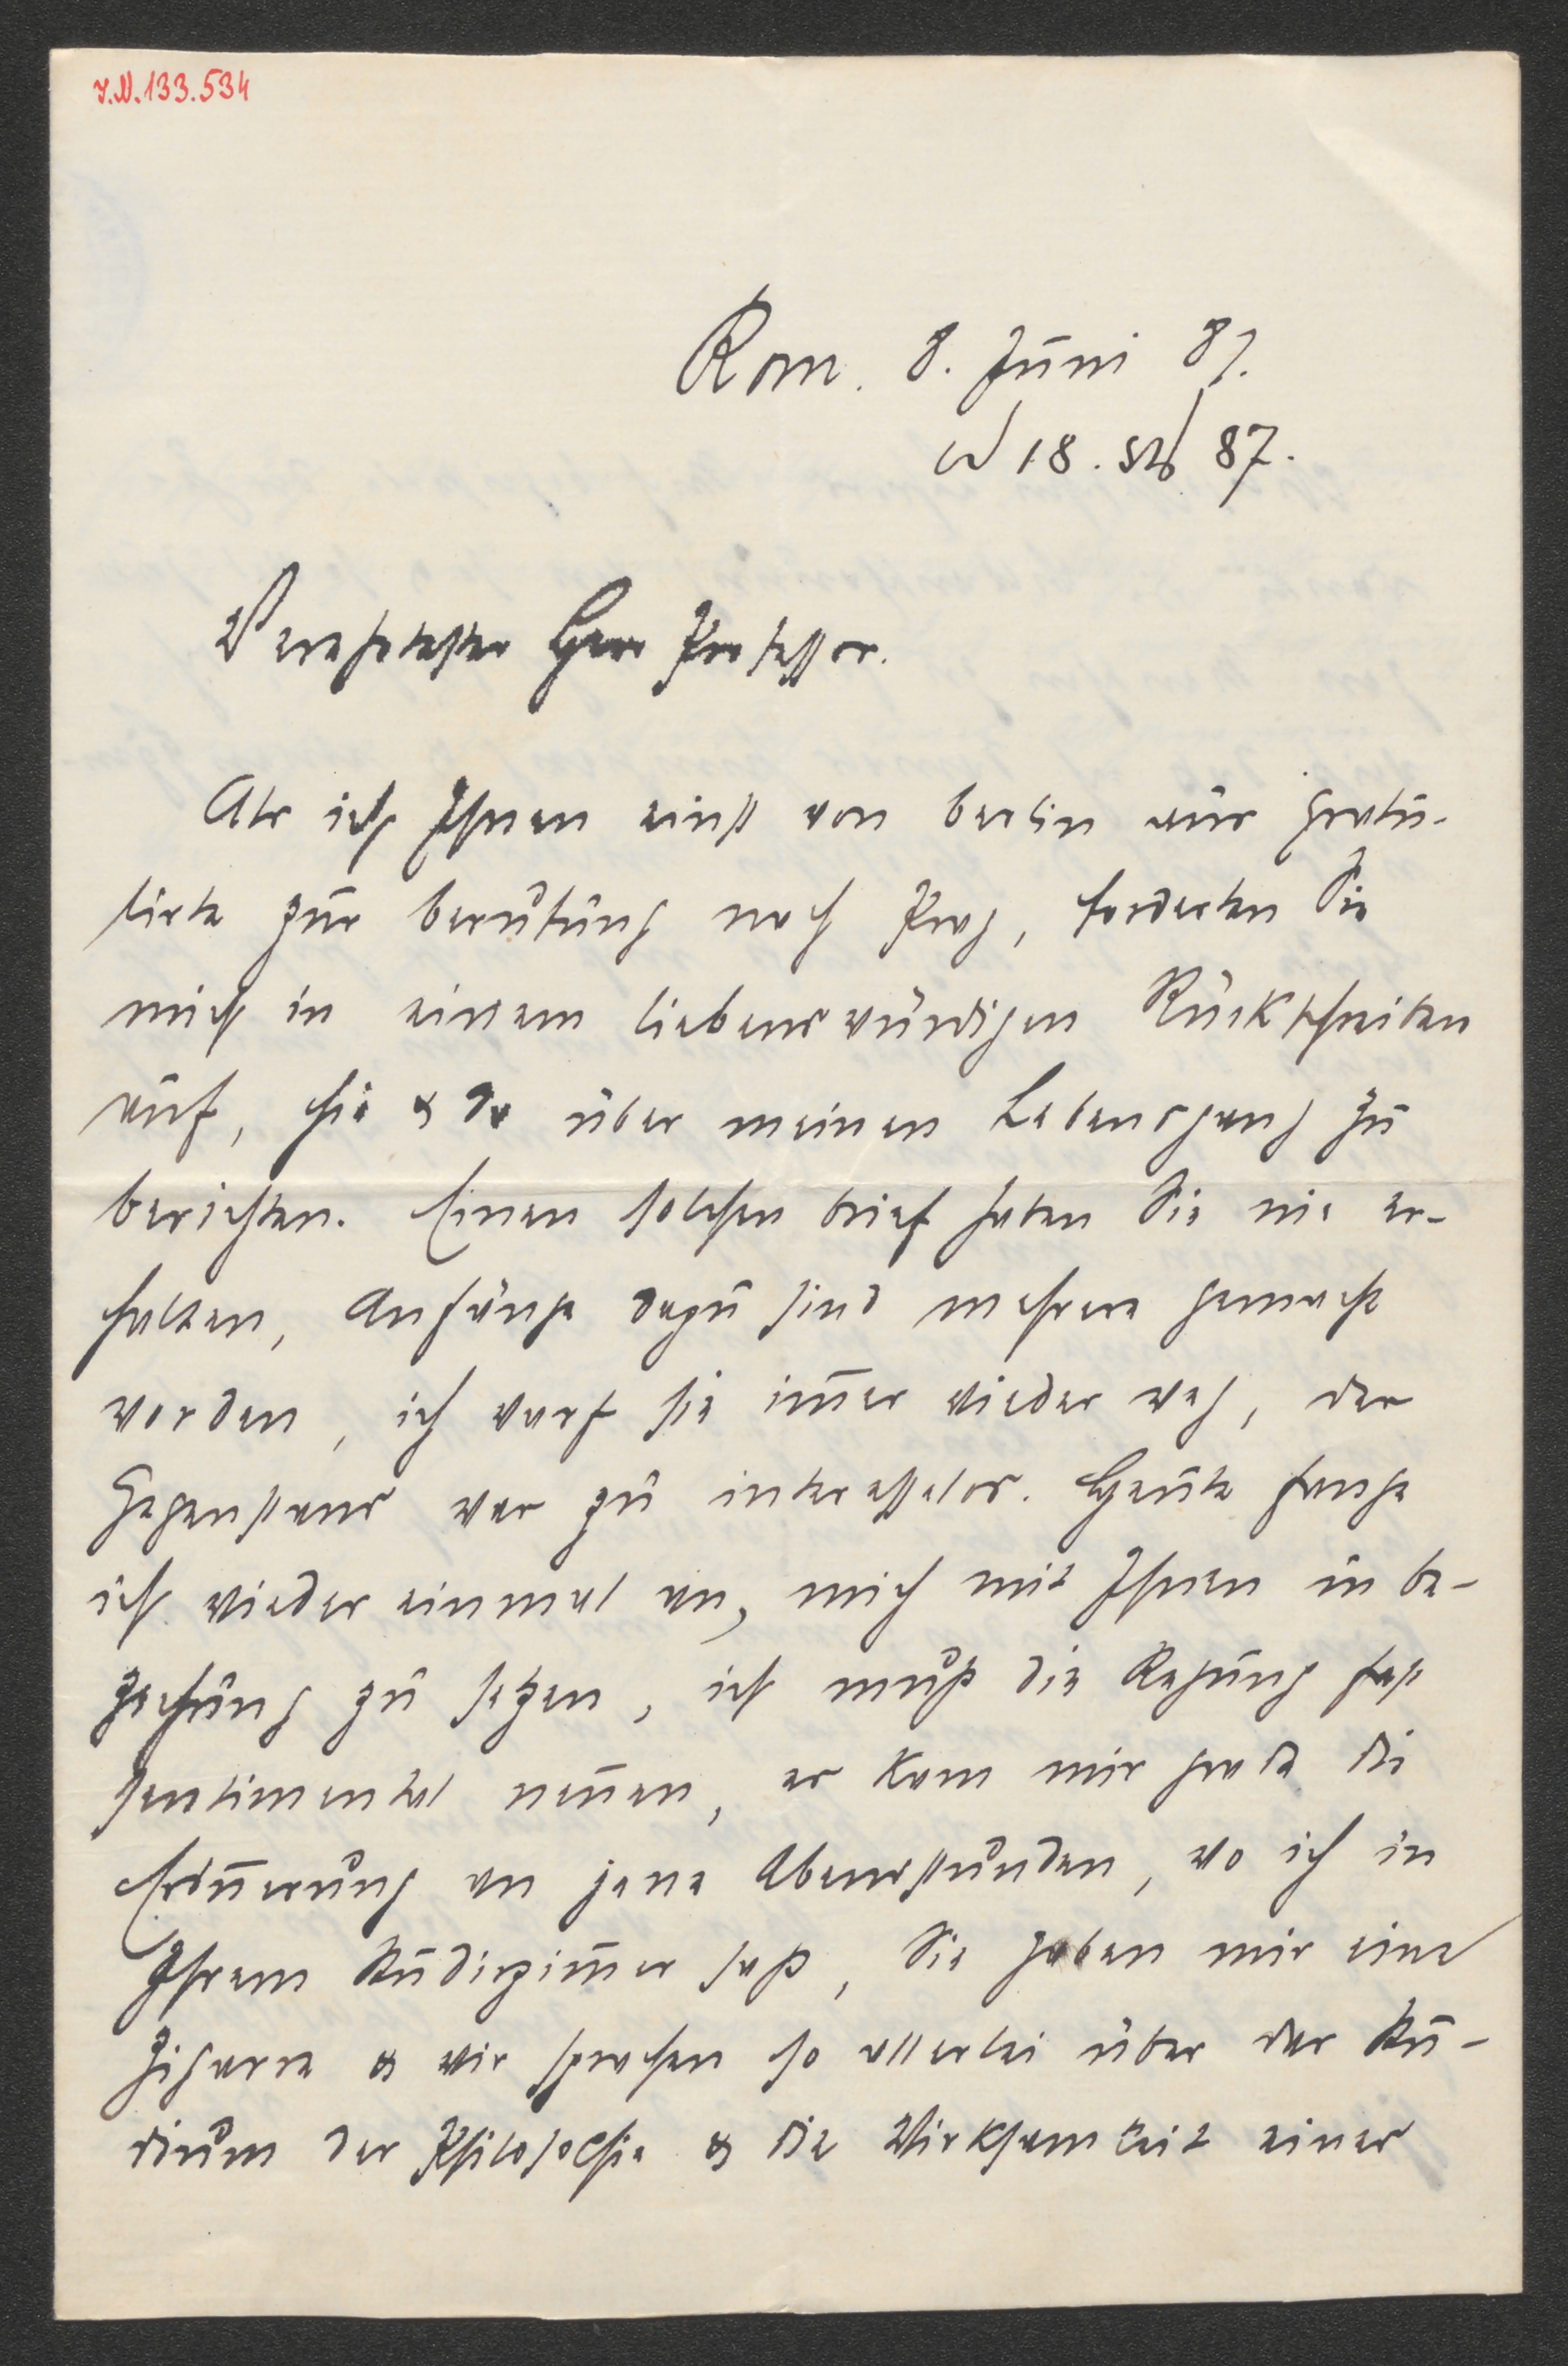 I.N. 133.534
Rom. 8. Juni 87.
18. 87.
Verehrtester Herr Professor.
Als ich Ihnen einst von Berlin aus gratu-
lirte zur Berufung nach Prag, forderten Sie
mich in einem liebenswürdigen Rückschreiben
auf, hie & da über meinen Lebensgang zu
berichten. Einen solchen Brief haben Sie nie er-
halten, Anfänge dazu sind mehrere gemacht
worden, ich warf sie im̄er wieder weg, der
Gegenstand war zu interesselos. Heute fange
ich wieder einmal an, mich mit Ihnen in Be-
ziehung zu setzen, ich muß die Regung fast
sentimental nen̄en, es kam mir grade die
Erin̄erung an jene Abendstunden, wo ich in
Ihrem Studirzim̄er saß, Sie gaben mir eine
Zigarre & wir sprachen so allerlei über das Stu-
dium der Philosophie & die Wirksamkeit eines